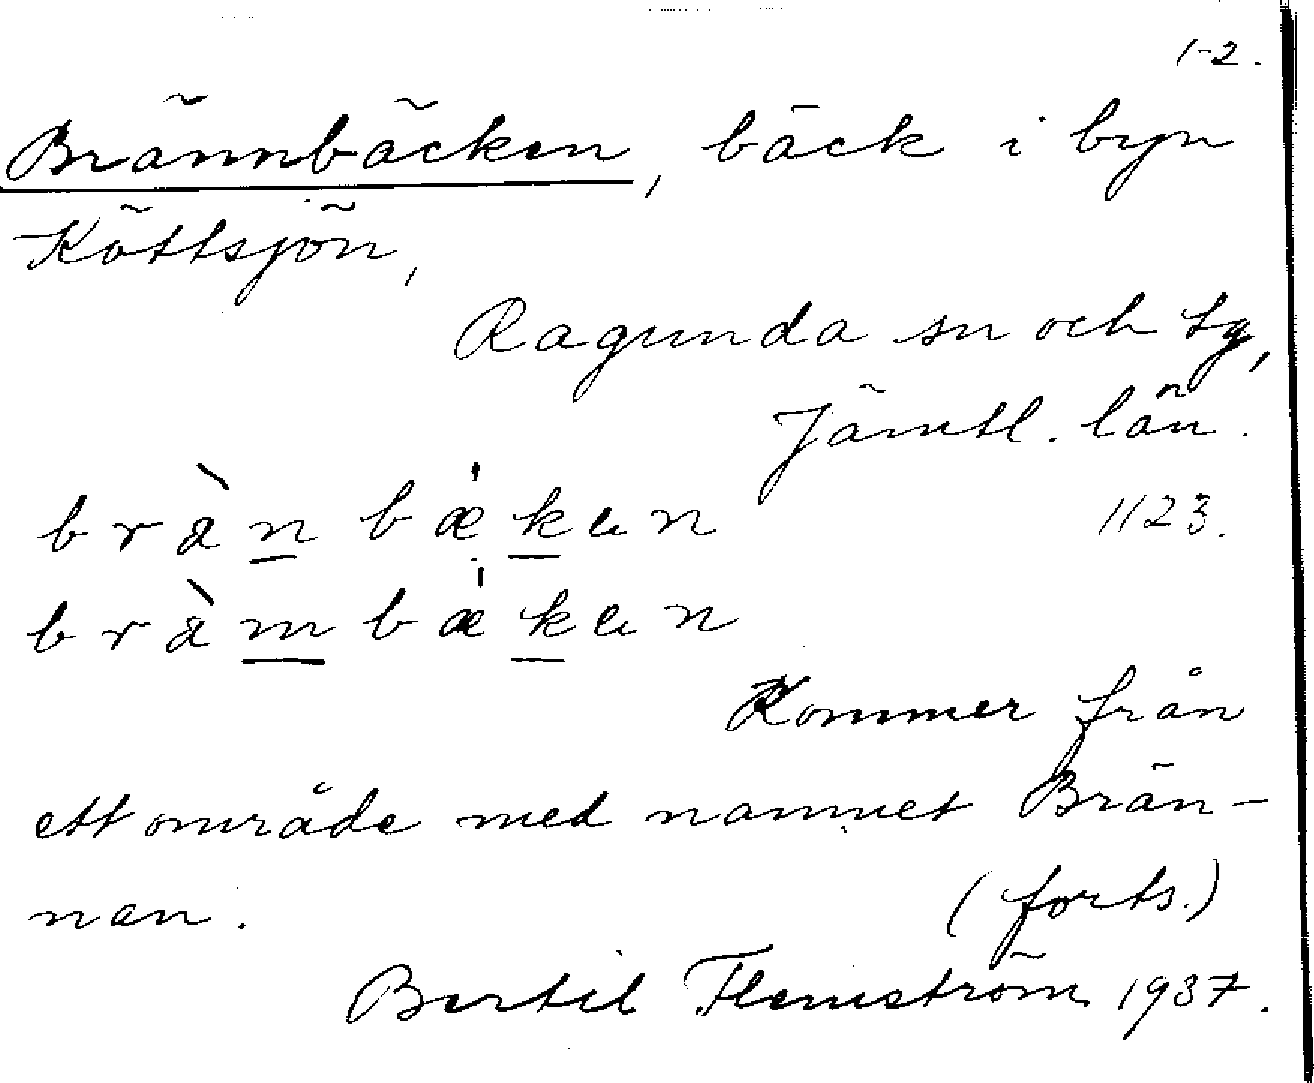 1-2.
Brännbäcken, bäck i byn
Köttsjön,
Ragunda sn och tg,
Jämtl. län.
bràn bǽken 1123.
bràm bǽken
Kommer från
ett område med namnet Brän-
nan. (forts.)
Bertil Flemström 1937.